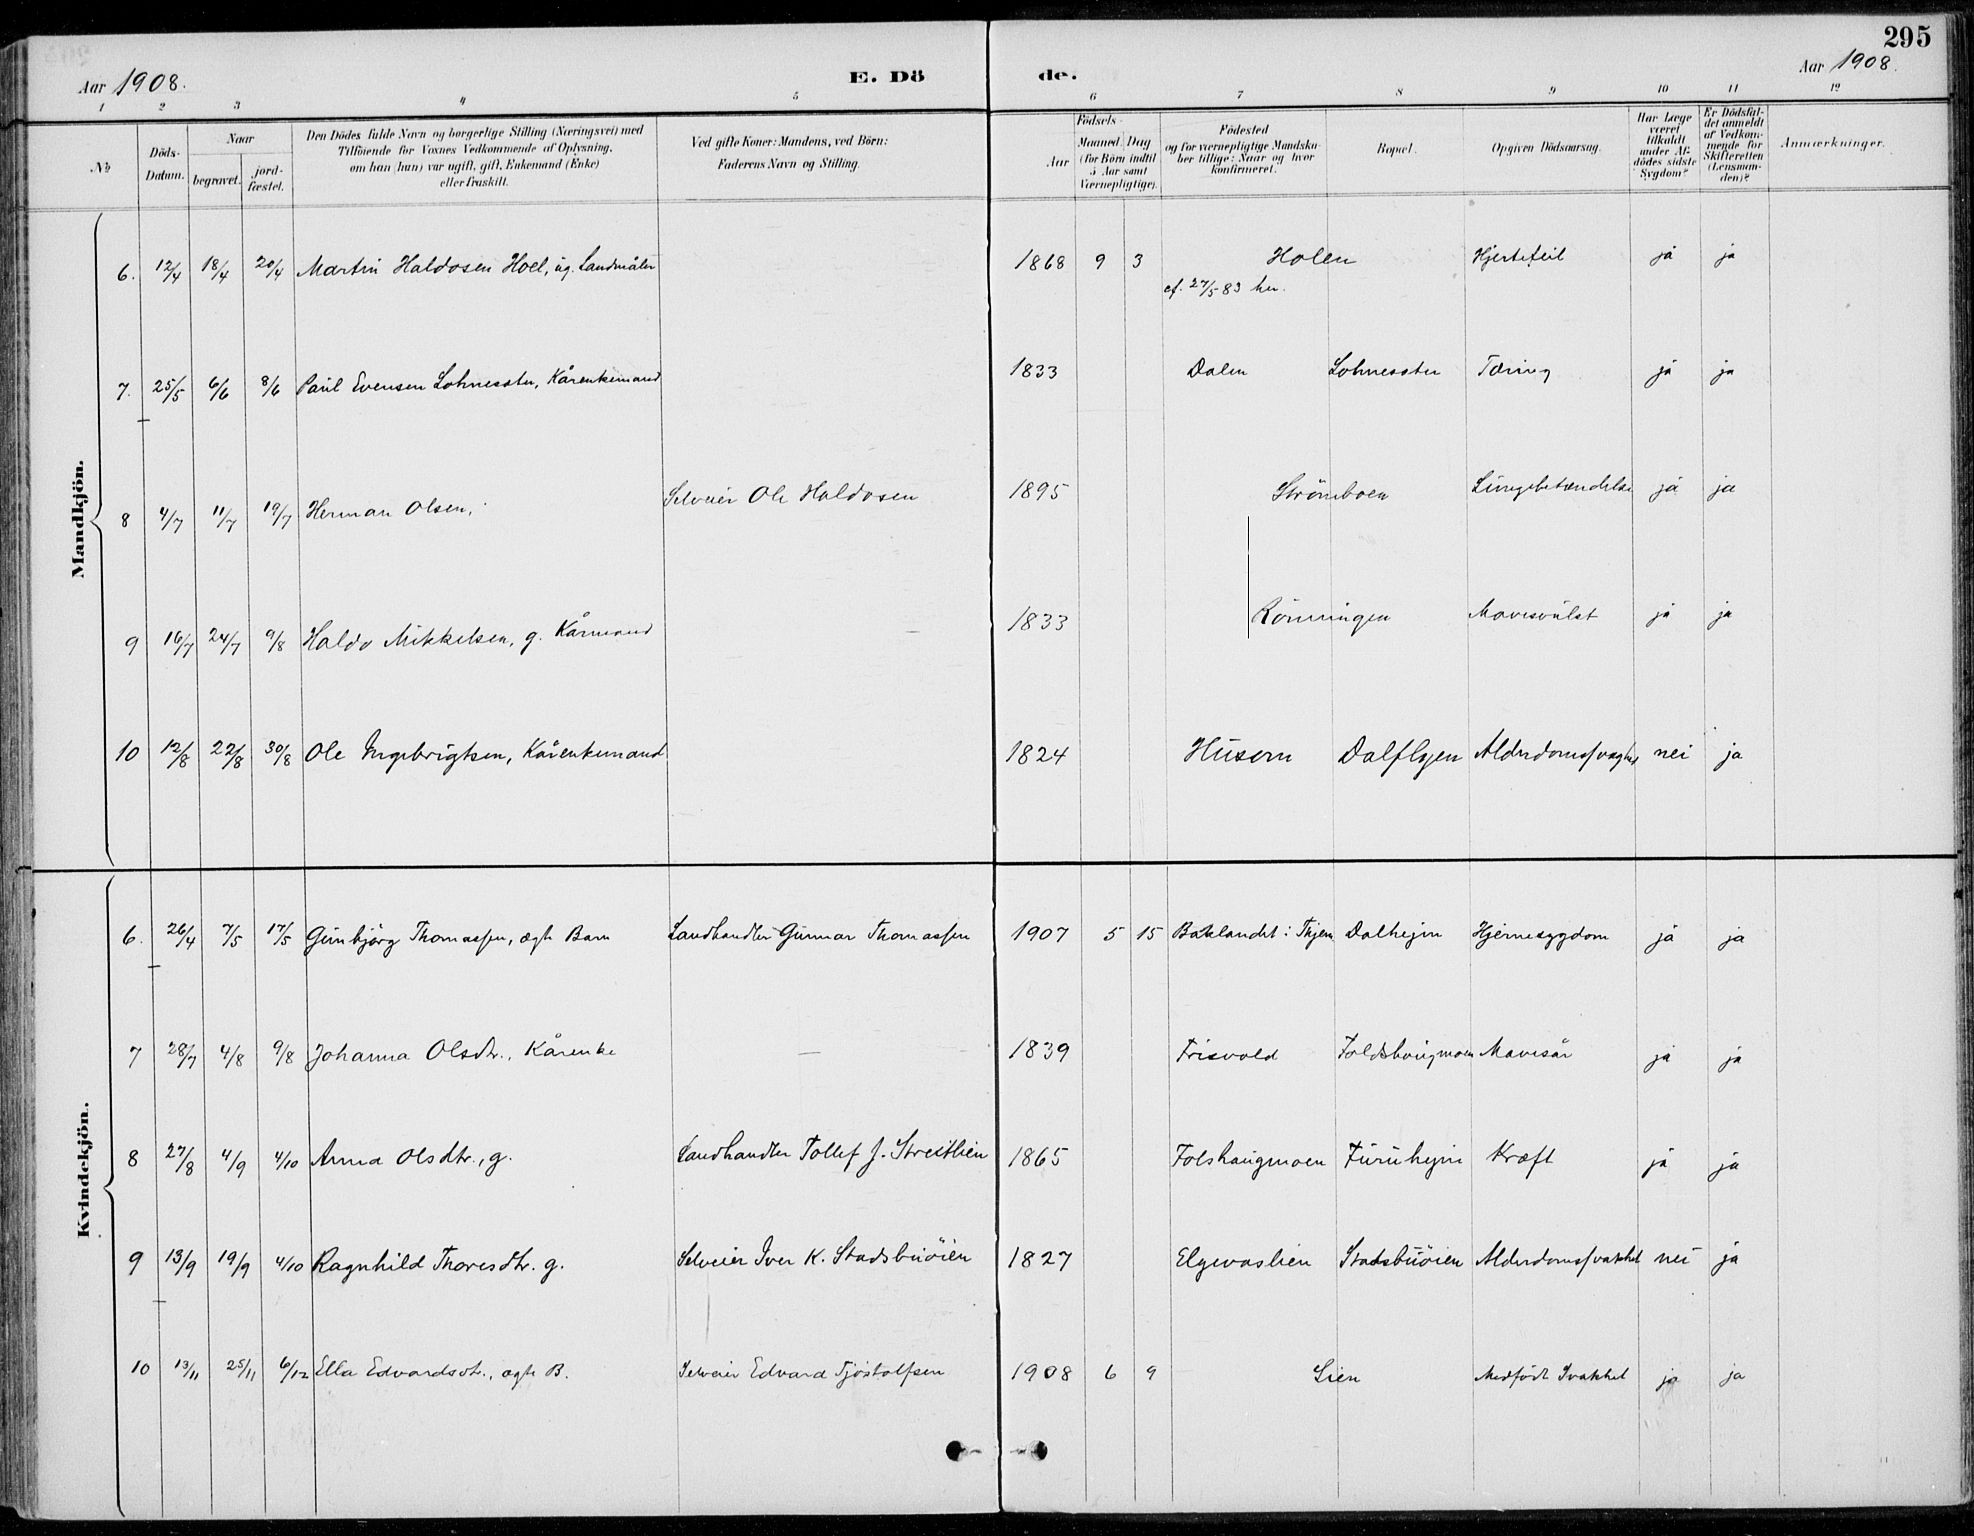 295
Aar 1908.
E. Dö de.
Aar 1908.
1 2 3 4 5 6 7 8 9 10 11 12
No
Döds-Datum.
Naar
begravet. jordfæstet.
Den Dödes fulde Navn og borgerlige Stilling (Næringsvei) med
Tilföiende for Voxnes Vedkommende af Oplysning,
om han (hun) var ugift, gift, Enkemand (Enke)
eller fraskilt.
Ved gifte Koner: Mandens, ved Börn:
Faderens Navn og Stilling.
Födsels-
Aar
Maaned. Dag
(for Börn indtil
5 Aar samt
Værnepligtige).
Födested
og for værnepligtige Mandska-
ber tillige: Naar og hvor
konfirmeret.
Bopæl.
Opgiven Dödsaarsag.
Har Læge
været
tilkaldt
under Af-
dödes sidste
Sygdom?
Er Dödsfal-
det anmeldt
af Vedkom-
mende for
Skifteretten
(Lensman-
den)?
Anmærkninger.
Mandkjön.
6. 12/4 18/4 20/4 Martin Haldosen Hoel, ug. Landmåler 1868 9 3 Holen Hjertefeil ja ja
cf. 27/5 83 her.
7. 25/5 6/6 8/6 Paul Evensen Lohnesster, Kårenkemand 1833 Dalen Lohnesster Tæring ja ja
8 4/7 11/7 19/7 Herman Olsen, Selveier Ole Haldosen 1895 Strömboen Lungebetændelse ja ja
9 16/7 24/7 9/8 Haldo Mikkelsen, g. Kårmand 1833 Rönningen Mavesvulst ja ja
10 12/8 22/8 30/8 Ole Ingebrigtsen, Kårenkemand 1824 Husom Dalflyen Alderdomssvaghed nei ja
Kvindekjön.
6. 26/4 7/5 17/5 Gunbjörg Thomassen, ægte Barn Landhandler Gunnar Thomassen 1907 5 15 Baklandet i Thjem Dalheim Hjernesygdom ja ja
7 28/7 4/8 9/8 Johanna Olsdtr., Kårenke — 1839 Frisvold Foldshougmoen Mavesår ja ja
8 27/8 4/9 4/10 Anna Olsdtr., g. Landhandler Tollef J. Streitlien 1865 Folshaugmoen Furuheim Kræft ja ja
9 13/9 19/9 4/10 Ragnhild Thoresdtr. g. Selveier Iver K. Stadsbuöien 1827 Elgevaslien Stadsbuöien Alderdomssvakhet nei ja
10 13/11 25/11 6/12 Ella Edvardsdtr., ægte B. Selveier Edvard Tjöstolfsen 1908 6 9 Lien Medfödt Svakhet ja ja